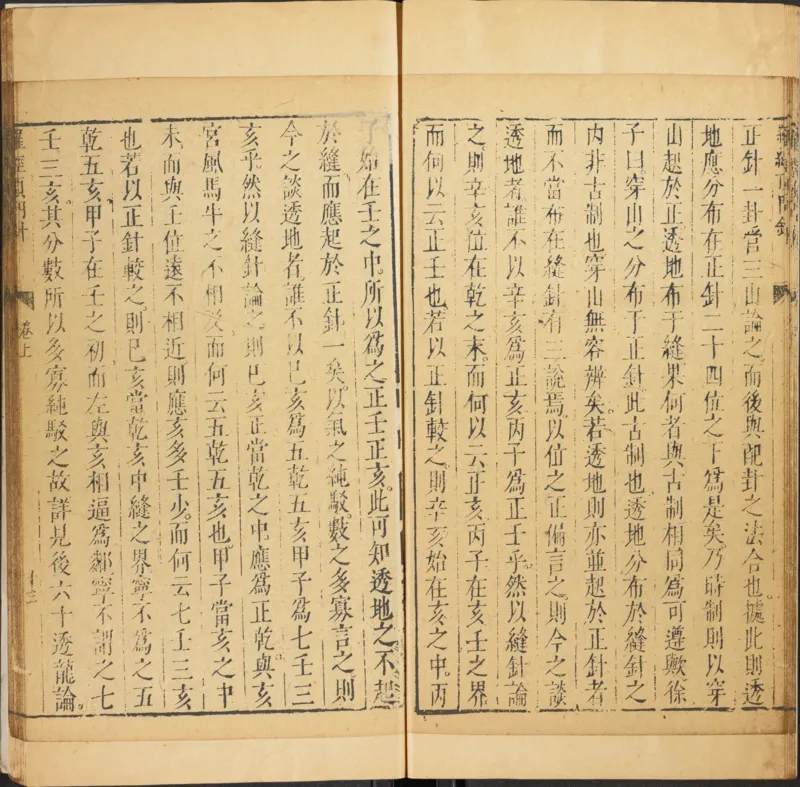 羅經頂門針
正針一卦管三山論之而後與配卦之法合也據此則透
地應分布在正針二十四位之下為是矣乃時制則以穿
山起於正透地布于縫果何者與古制相同為可遵歟徐
子曰穿山之分布于正針此古制也透地分布於縫針之
內非古制也穿山無容辨矣若透地則亦並起於正針者
而不當布在縫針有三說焉以位之正偏言之則今之談
透地者誰不以辛亥為正亥丙子為正壬乎然以縫針論
之則辛亥位在乾之末而何以云正亥丙子在亥壬之界
而何以云正壬也若以正針較之則辛亥始在亥之中丙
子始在壬之中所以為之正壬正亥此可知透地之不起
於縫而應起於正針一矣以氣之純駁數之多寡言之則
今之談透地者誰不以已亥為五乾五亥甲子為七壬三
亥乎然以縫針論之則已亥正當乾之中應為正乾與亥
宮風馬牛之不相及而何云五乾五亥也甲子當亥之中
未而與壬位遠不相近則應亥多壬少而何云七壬三亥
也若以正針較之則已亥當乾亥中縫之界寧不為之五
乾五亥甲子在壬之初而左與亥相逼為鄰寧不謂之七
壬三亥其分數所以多寡純駁之故詳見後六十透龍論
羅經頂門針
卷上
十三